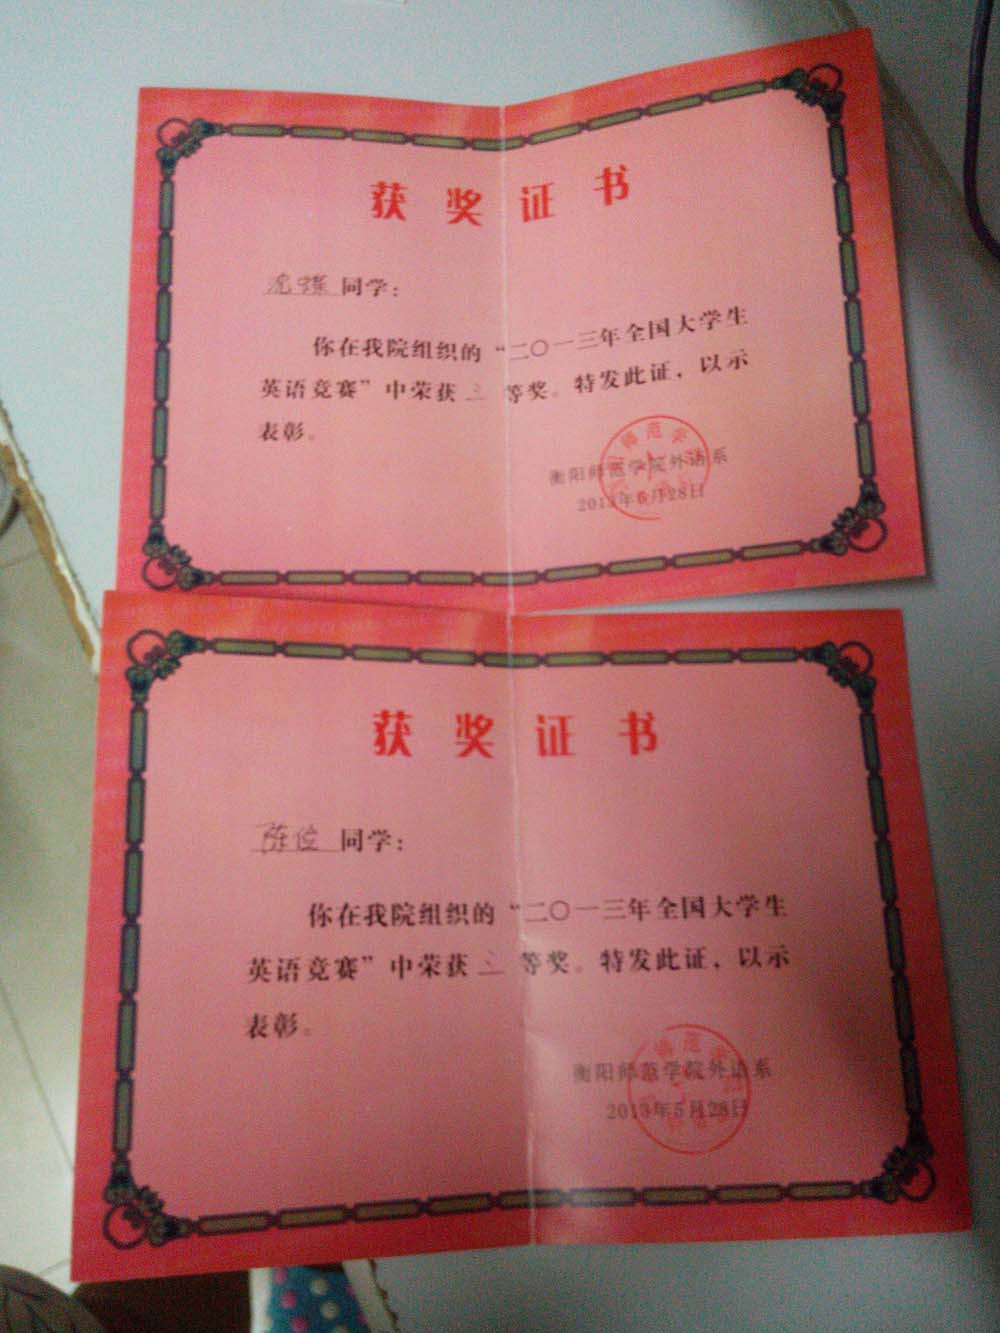 获奖证书
同学：
你在我院组织的“二〇一三年全国大学生
英语竞赛”中荣获 三 等奖。特发此证，以示
表彰。
衡阳师范学院外语系
2013年5月28日
获奖证书
陈 同学：
你在我院组织的“二〇一三年全国大学生
英语竞赛”中荣获 三 等奖。特发此证，以示
表彰。
衡阳师范学院外语系
2013年5月28日